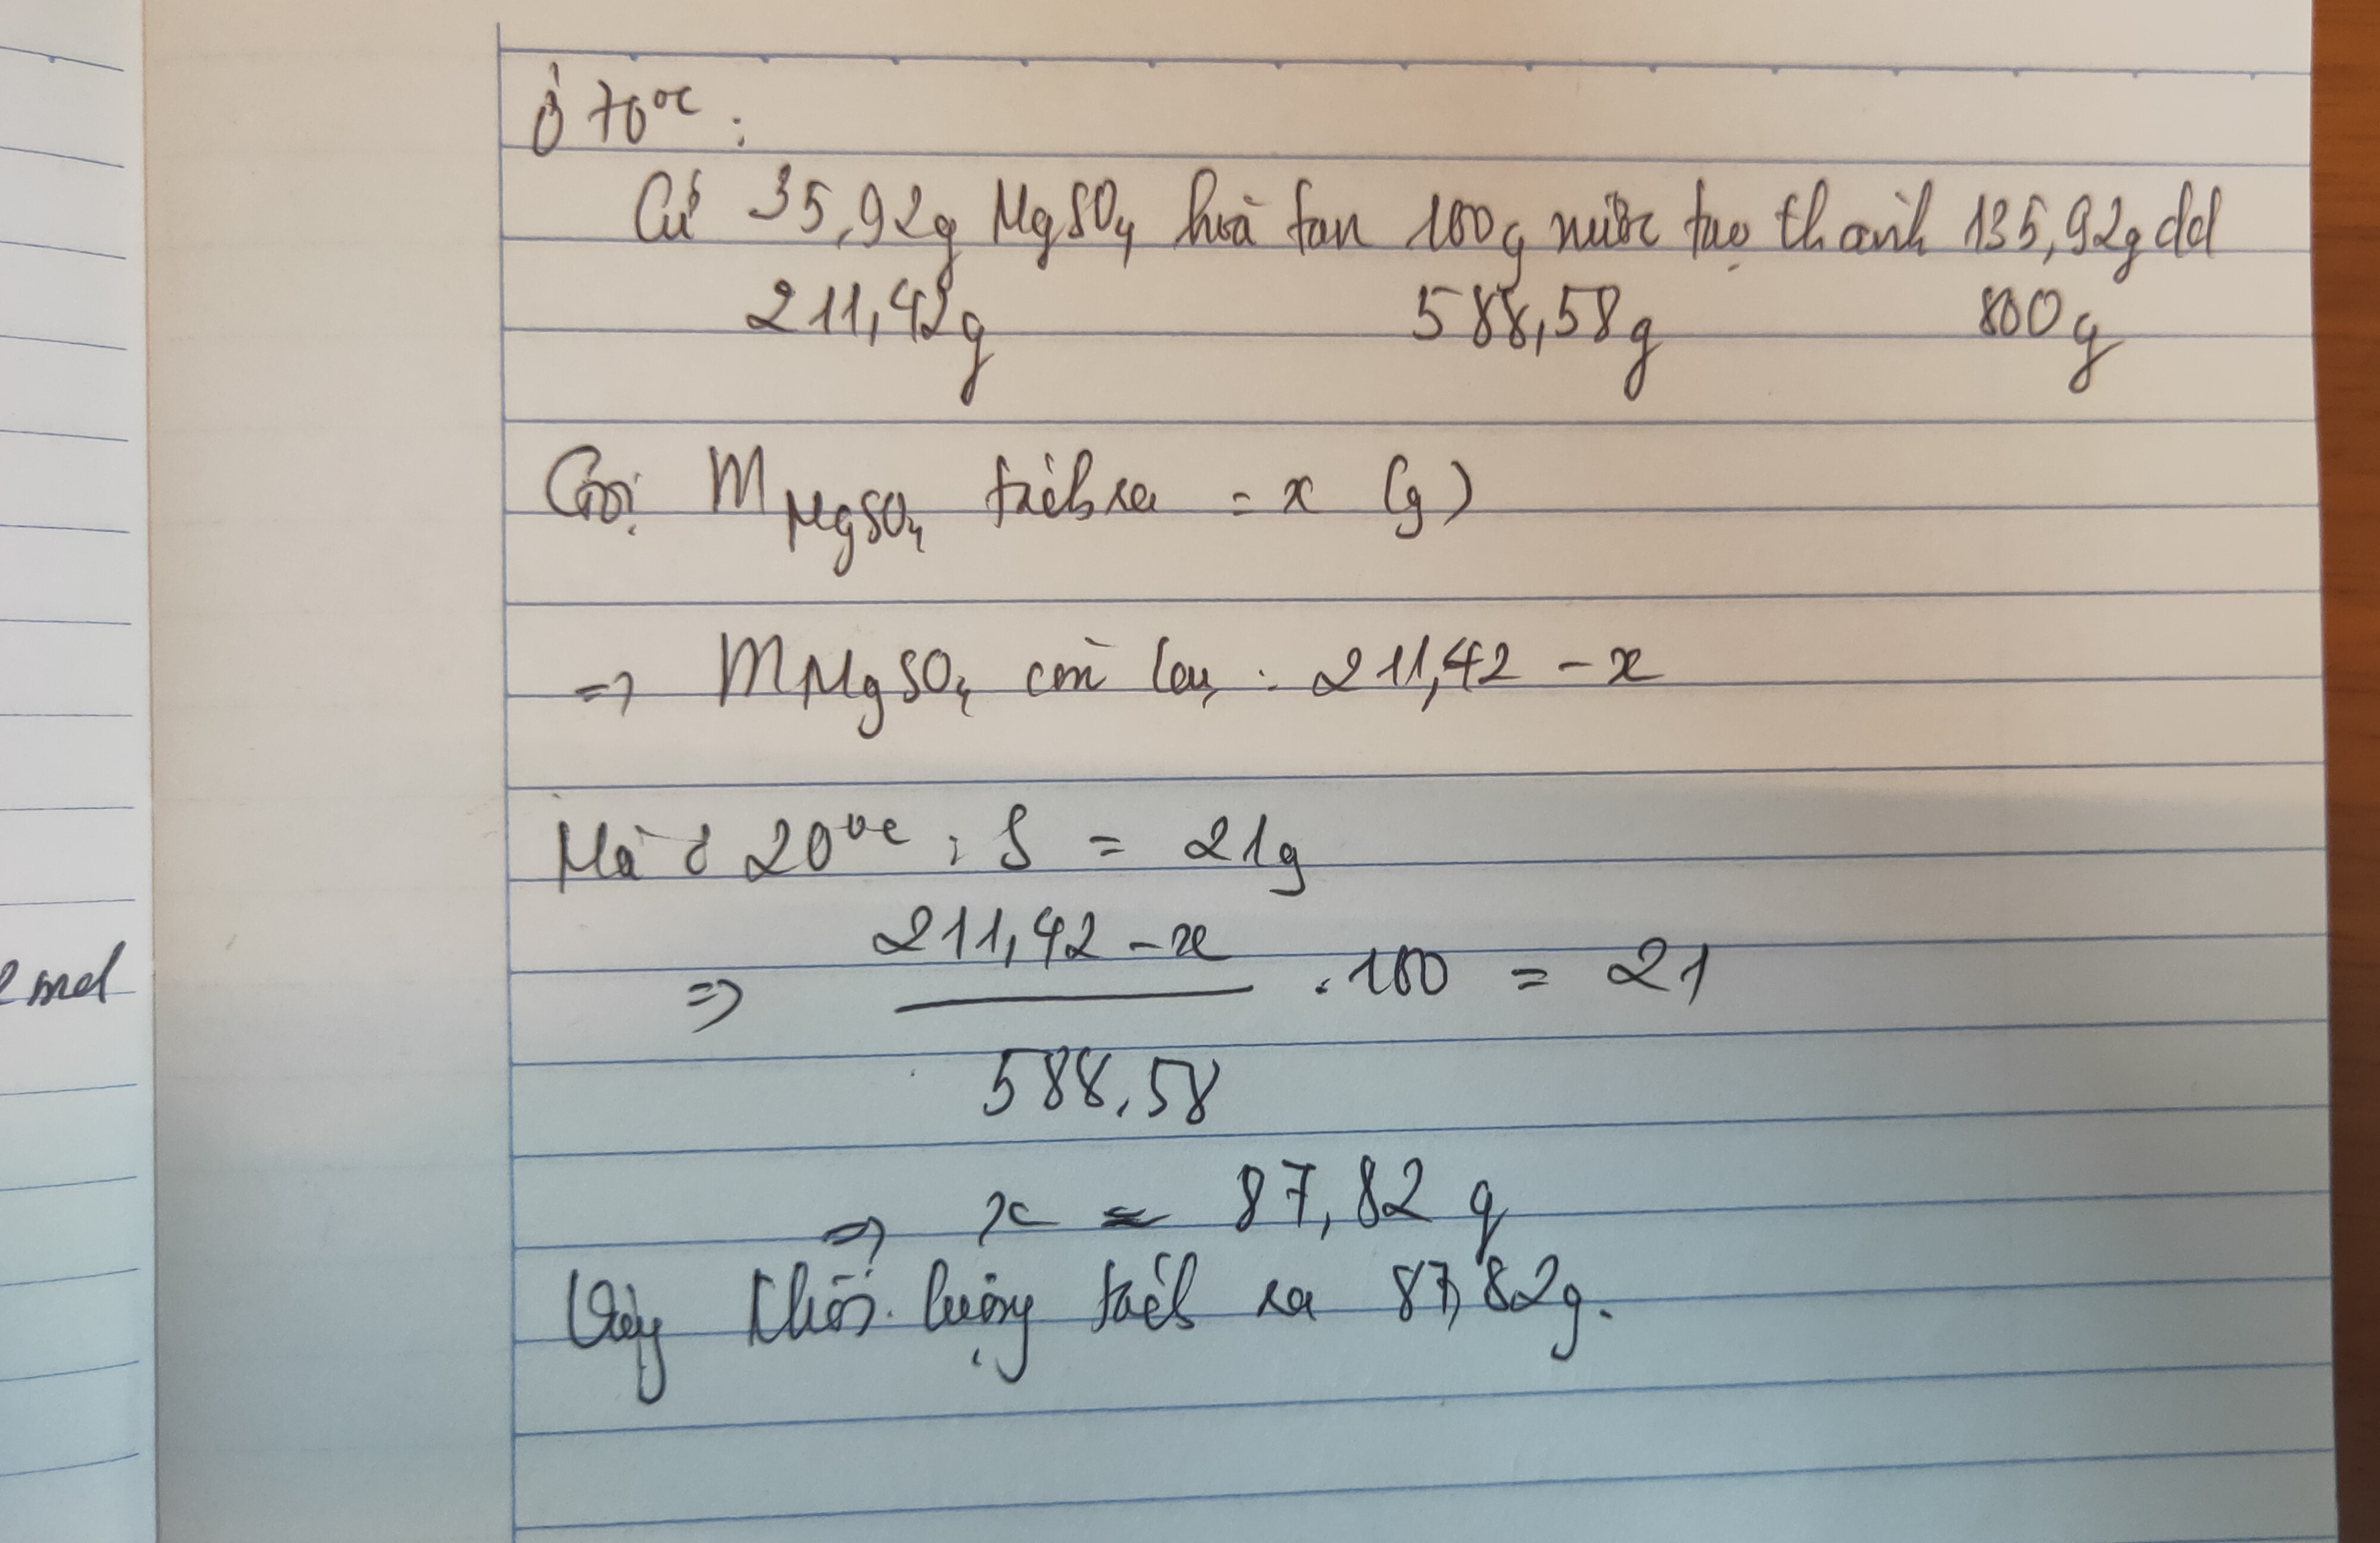 Ở 70°C:
Cứ 35,92g MgSO4 hoà tan 100g nước tạo thành 135,92g dd
211,42g 588,58g 800g
Gọi mMgSO4 tách ra = x (g)
=> mMgSO4 còn lại : 211,42 - x
Mà ở 20°C : S = 21g
=> 211,42 - x / 588,58 . 100 = 21
=> x = 87,82 g
Vậy khối lượng tách ra 87,82g.
2 mol